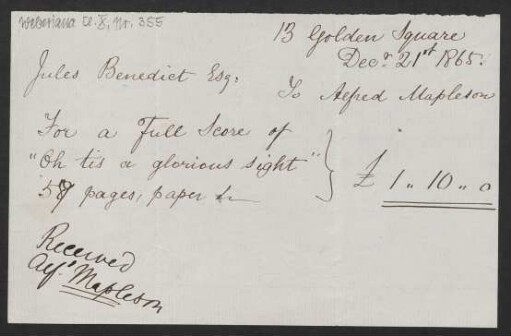 Weberiana Cl. X, Nr. 355
13 Golden Square
Decr. 21st 1865.
Jules Benedict Esq:
To Alfred Mapleson
For a Full Score of
"Oh tis a glorious sight"
59 pages, paper &c
£ 1 " 10 " 0
Received
Alf. Mapleson